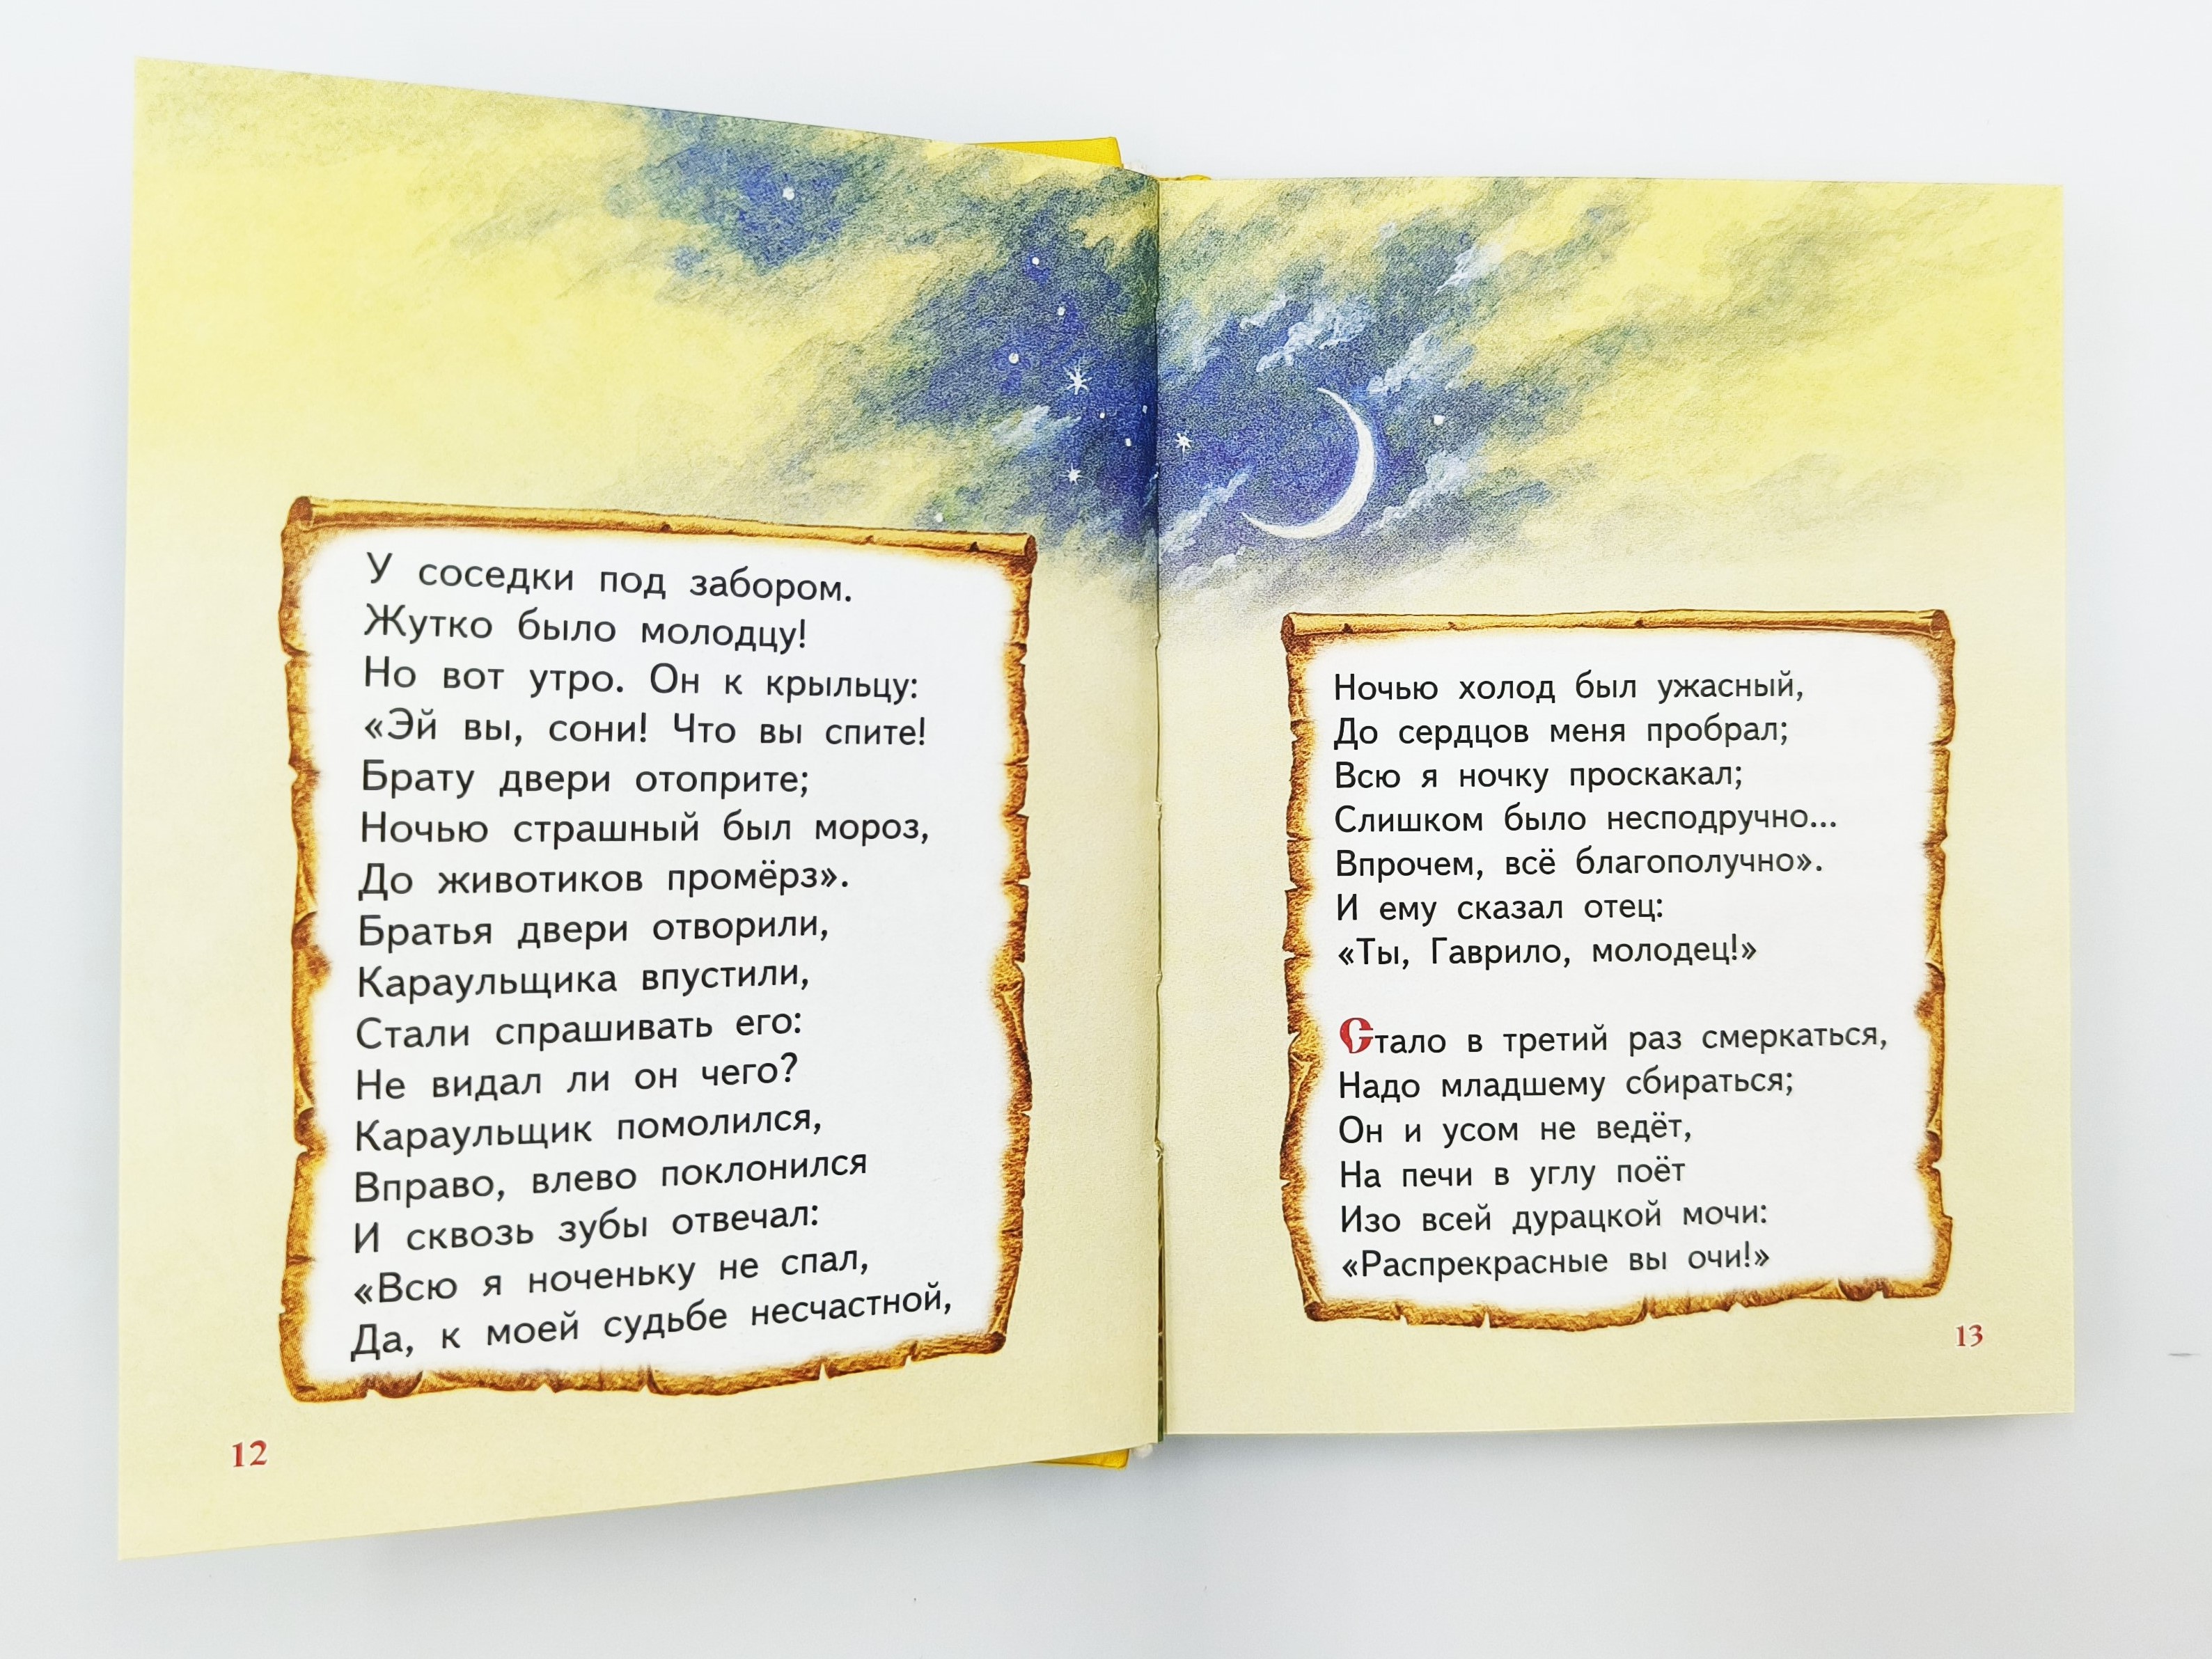 У соседки под забором.
Жутко было молодцу!
Но вот утро. Он к крыльцу:
«Эй вы, сони! Что вы спите!
Брату двери отоприте;
Ночью страшный был мороз,
До животиков промёрз».
Братья двери отворили,
Караульщика впустили,
Стали спрашивать его:
Не видал ли он чего?
Караульщик помолился,
Вправо, влево поклонился
И сквозь зубы отвечал:
«Всю я ноченьку не спал,
Да, к моей судьбе несчастной,
12
Ночью холод был ужасный,
До сердцов меня пробрал;
Всю я ночку проскакал;
Слишком было несподручно...
Впрочем, всё благополучно».
И ему сказал отец:
«Ты, Гаврило, молодец!»
Стало в третий раз смеркаться,
Надо младшему сбираться;
Он и усом не ведёт,
На печи в углу поёт
Изо всей дурацкой мочи:
«Распрекрасные вы очи!»
13